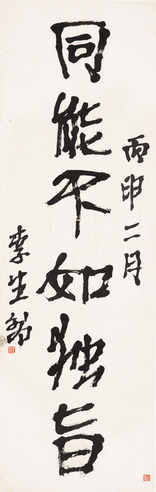 同能不如独旨
丙申二月
李生翁